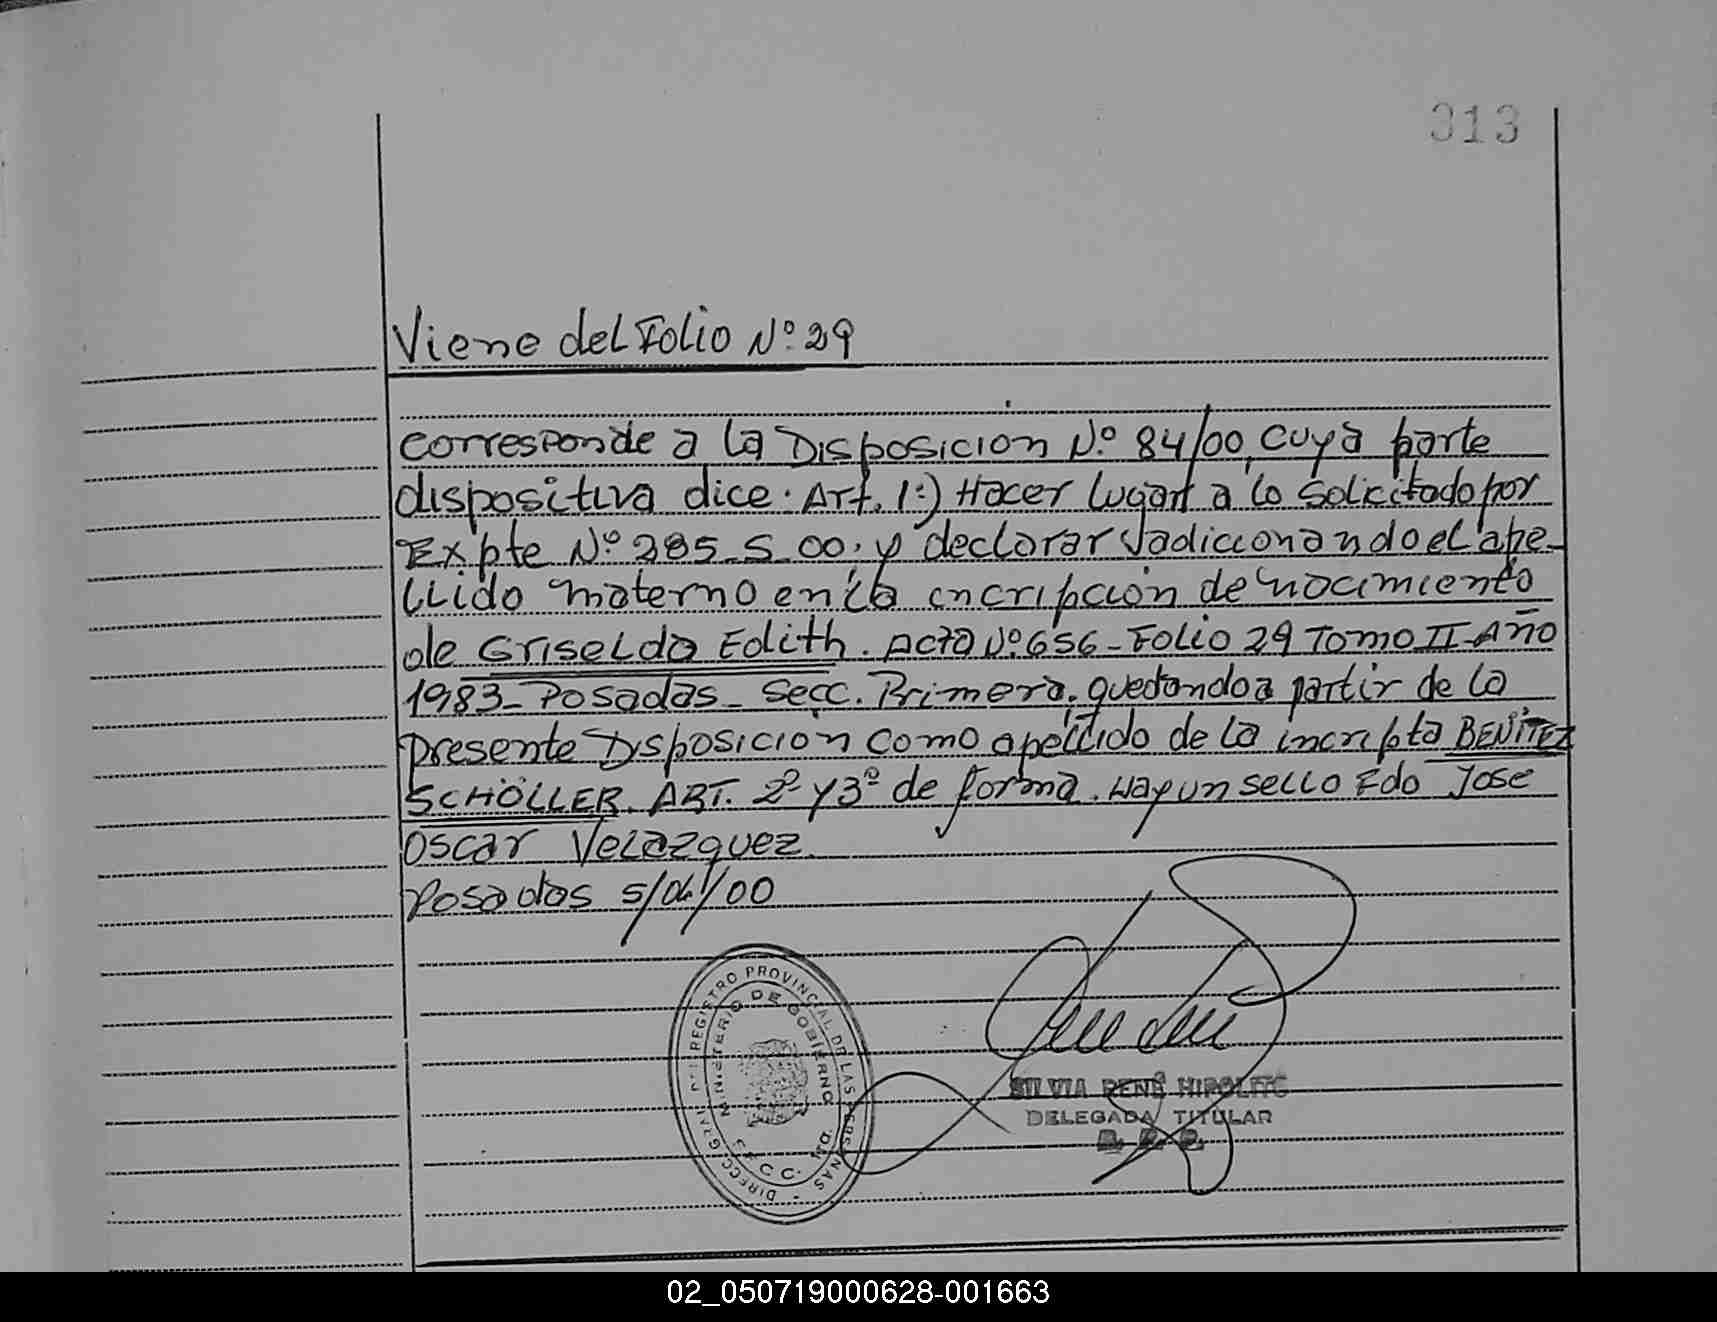 313
Viene del Folio Nº 29
corresponde a la Disposicion Nº 84/00, cuya parte
dispositiva dice: Art. 1º) Hacer lugart a lo solicitado por
Expte Nº 285-S-00. y declarar adiccionando el ape-
llido materno en la incripción de nacimiento
de Griselda Edith. Acta Nº 656- Folio 29 Tomo II-Año
1983- Posadas- Secc. Primera. quedando a partir de la
presente Disposicion como apellido de la incripta BENITEZ
SCHÖLLER. ART. 2º y 3º de forma. Hay un sello Fdo Jose
Oscar Velazquez.
Posadas 5/04/00
DIRECC. GRAL. DEL REGISTRO PROVINCIAL DE LAS PERSONAS
MINISTERIO DE GOBIERNO
SECC.
SILVIA RENÉ HIPOLITO
DELEGADA TITULAR
R. P. P.
02_050719000628-001663